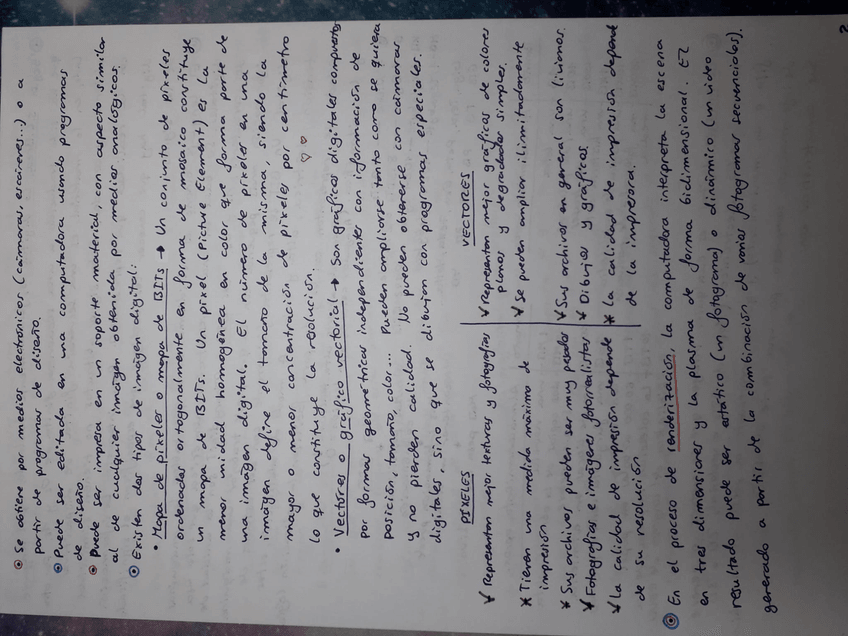 2
Se obtiene por medios electrónicos (cámaras, escáneres...) o a
partir de programas de diseño.
Puede ser editada en una computadora usando programas
de diseño.
Puede ser impresa en un soporte material, con aspecto similar
al de cualquier imágen obtenida por medios analógicos.
Existen dos tipos de imágen digital:
• Mapa de píxeles o mapa de BITs → Un conjunto de píxeles
ordenados ortogonalmente en forma de mosaico constituye
un mapa de BITs. Un píxel (Picture Element) es la
menor unidad homogénea en color que forma parte de
una imágen digital. El número de píxeles en una
imágen define el tamaño de la misma, siendo la
mayor o menor concentración de píxeles por centímetro
lo que constituye la resolución. ♡ ♡
• Vectores o gráfico vectorial → Son gráficos digitales compuestos
por formas geométricas independientes con información de
posición, tamaño, color... Pueden ampliarse tanto como se quiera
y no pierden calidad. No pueden obtenerse con cámaras
digitales, sino que se dibujan con programas especiales.
PÍXELES
* Representan mejor texturas y fotografías
* Tienen una medida máxima de
impresión
* Sus archivos pueden ser muy pesados
* Fotografías e imágenes fotorrealistas
* La calidad de impresión depende
de su resolución
VECTORES
* Representan mejor gráficos de colores
planos y degradados simples.
* Se pueden ampliar ilimitadamente
* Sus archivos en general son livianos.
* Dibujos y gráficos.
* La calidad de impresión depende
de la impresora.
En el proceso de renderización, la computadora interpreta la escena
en tres dimensiones y la plasma de forma bidimensional. El
resultado puede ser estático (un fotograma) o dinámico (un video
generado a partir de la combinación de varios fotogramas secuenciales).